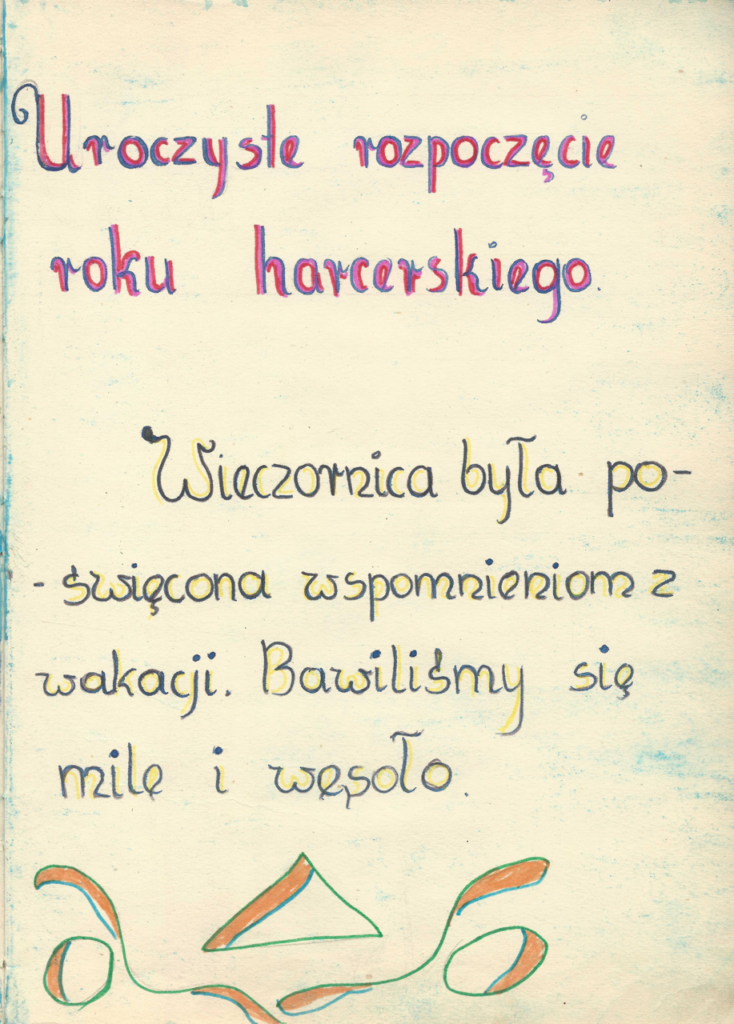 Uroczyste rozpoczęcie
roku harcerskiego.
Wieczornica była po-
- święcona wspomnieniom z
wakacji. Bawiliśmy się
mile i węsoło.